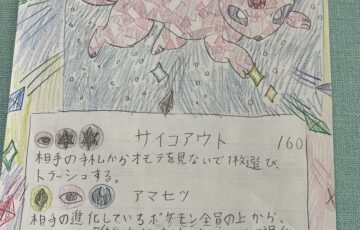 サイコアウト 160
相手の手札からオモテを見ないで1枚選び、
トラッシュする。
アマセツ
相手の進化しているポケモン全員の上から、